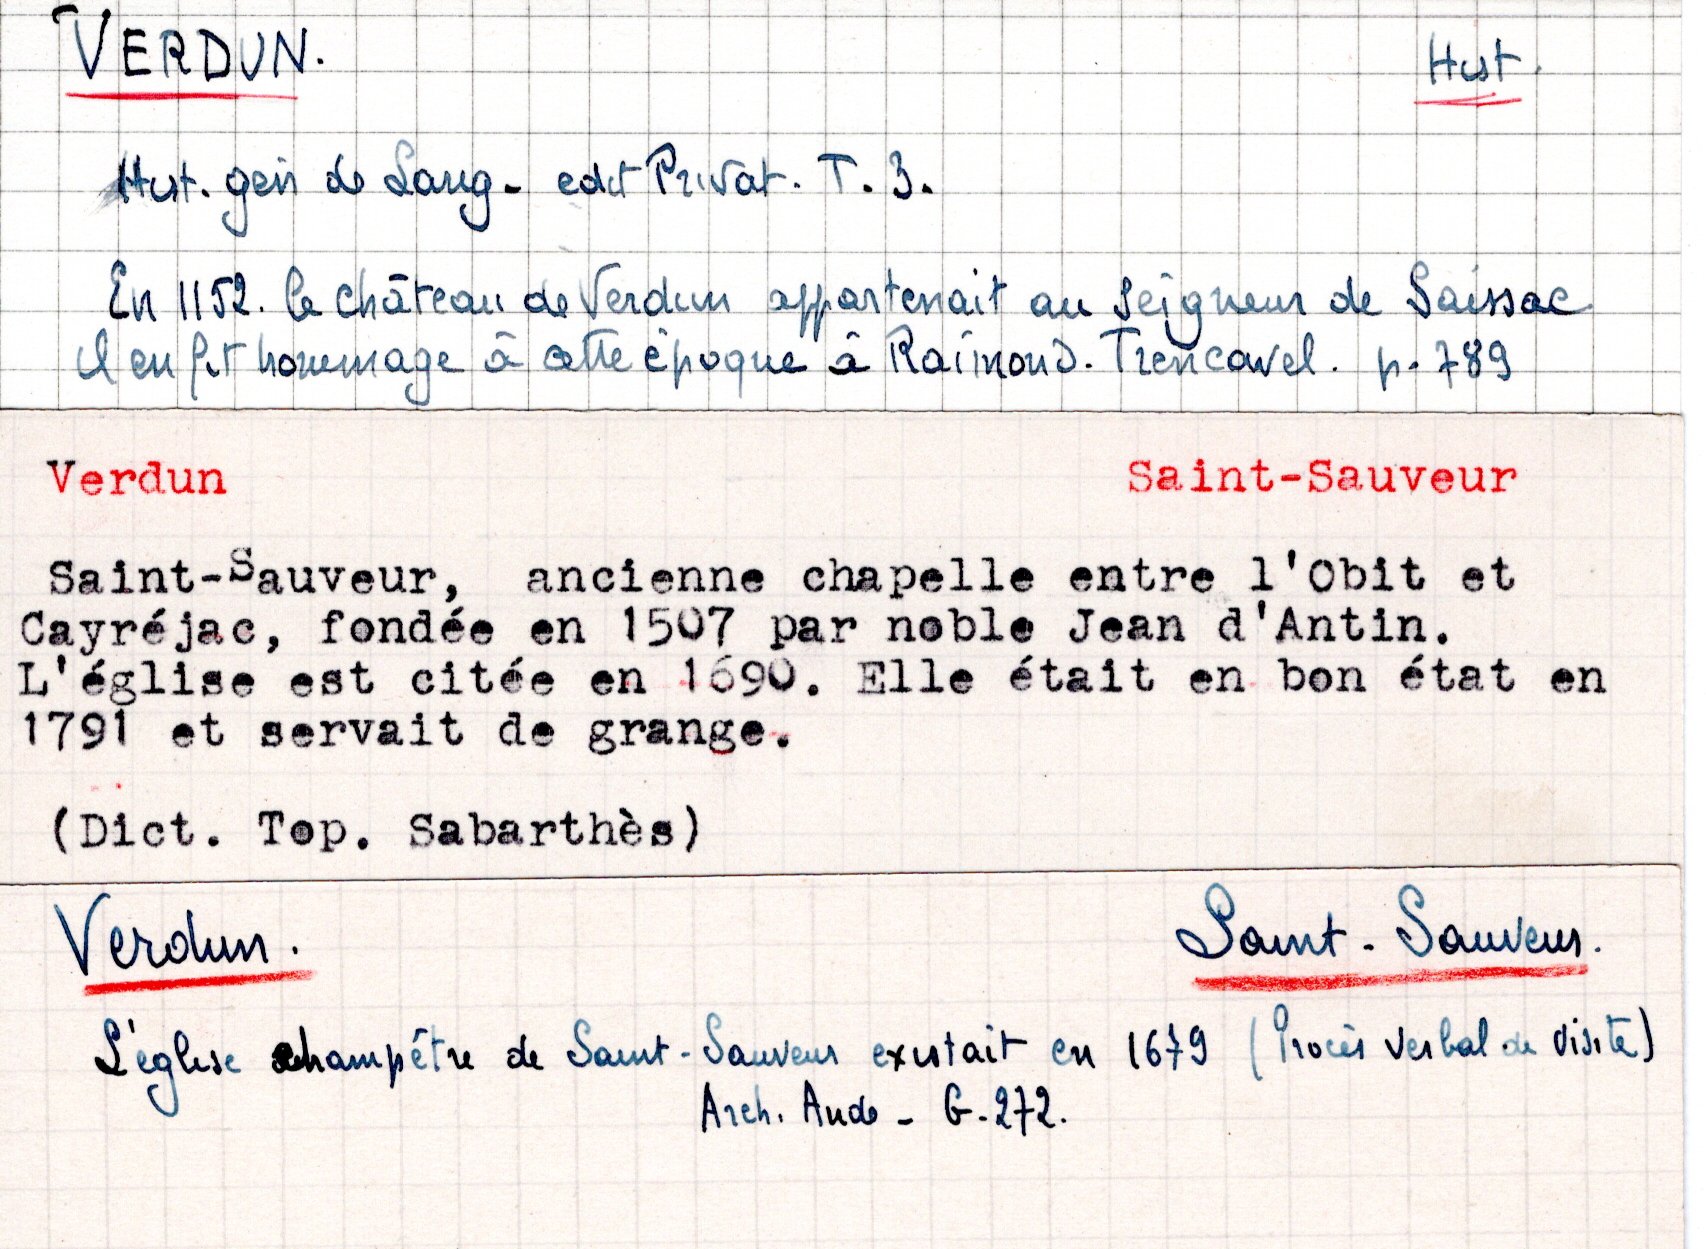 VERDUN.
Hist.
Hist. gén de Lang- edit Privat. T. 3.
En 1152. le château de Verdun appartenait au seigneur de Saissac
Il en fit hommage à cette époque à Raimond. Trencavel. p. 789
Verdun
Saint-Sauveur
Saint-Sauveur, ancienne chapelle entre l'Obit et
Cayréjac, fondée en 1507 par noble Jean d'Antin.
L'église est citée en 1690. Elle était en bon état en
1791 et servait de grange.
(Dict. Top. Sabarthès)
Verdun.
Saint-Sauveur.
L'église champêtre de Saint-Sauveur existait en 1679 (Procès verbal de visite)
Arch. Aude - G-272.